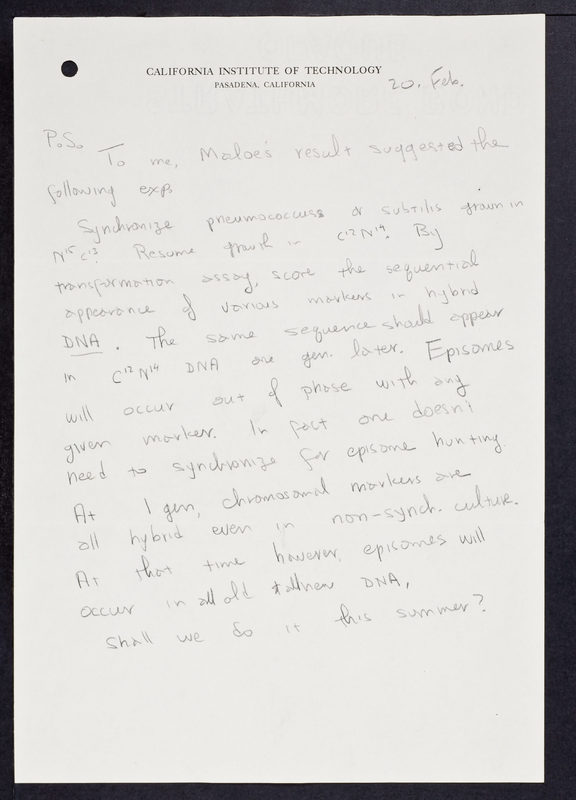 CALIFORNIA INSTITUTE OF TECHNOLOGY
PASADENA, CALIFORNIA
20. Feb.
P.S. To me, Maloe's result suggested the
following exp.
Synchronize pneumococcus or subtilis grown in
N15 C13. Resume growth in C12 N14. By
transformation assay, score the sequential
appearance of various markers in hybrid
DNA. The same sequence should appear
in C12 N14 DNA one gen. later. Episomes
will occur out of phase with any
given marker. In fact one doesn't
need to synchronize for episome hunting.
At 1 gen, chromosomal markers are
all hybrid even in non-synch. culture.
At that time however, episomes will
occur in all old + all new DNA.
Shall we do it this summer?